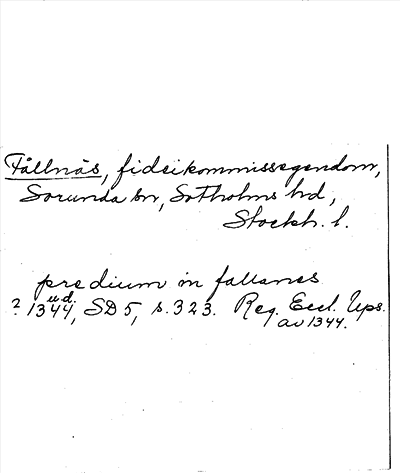 Fållnäs, fideikommissegendom,
Sorunda sn, Sotholms hd,
Stockh. l.
predium in fallanes
? 1344 u.d., SD 5, s. 323. Reg. Eccl. Ups.
av 1344.